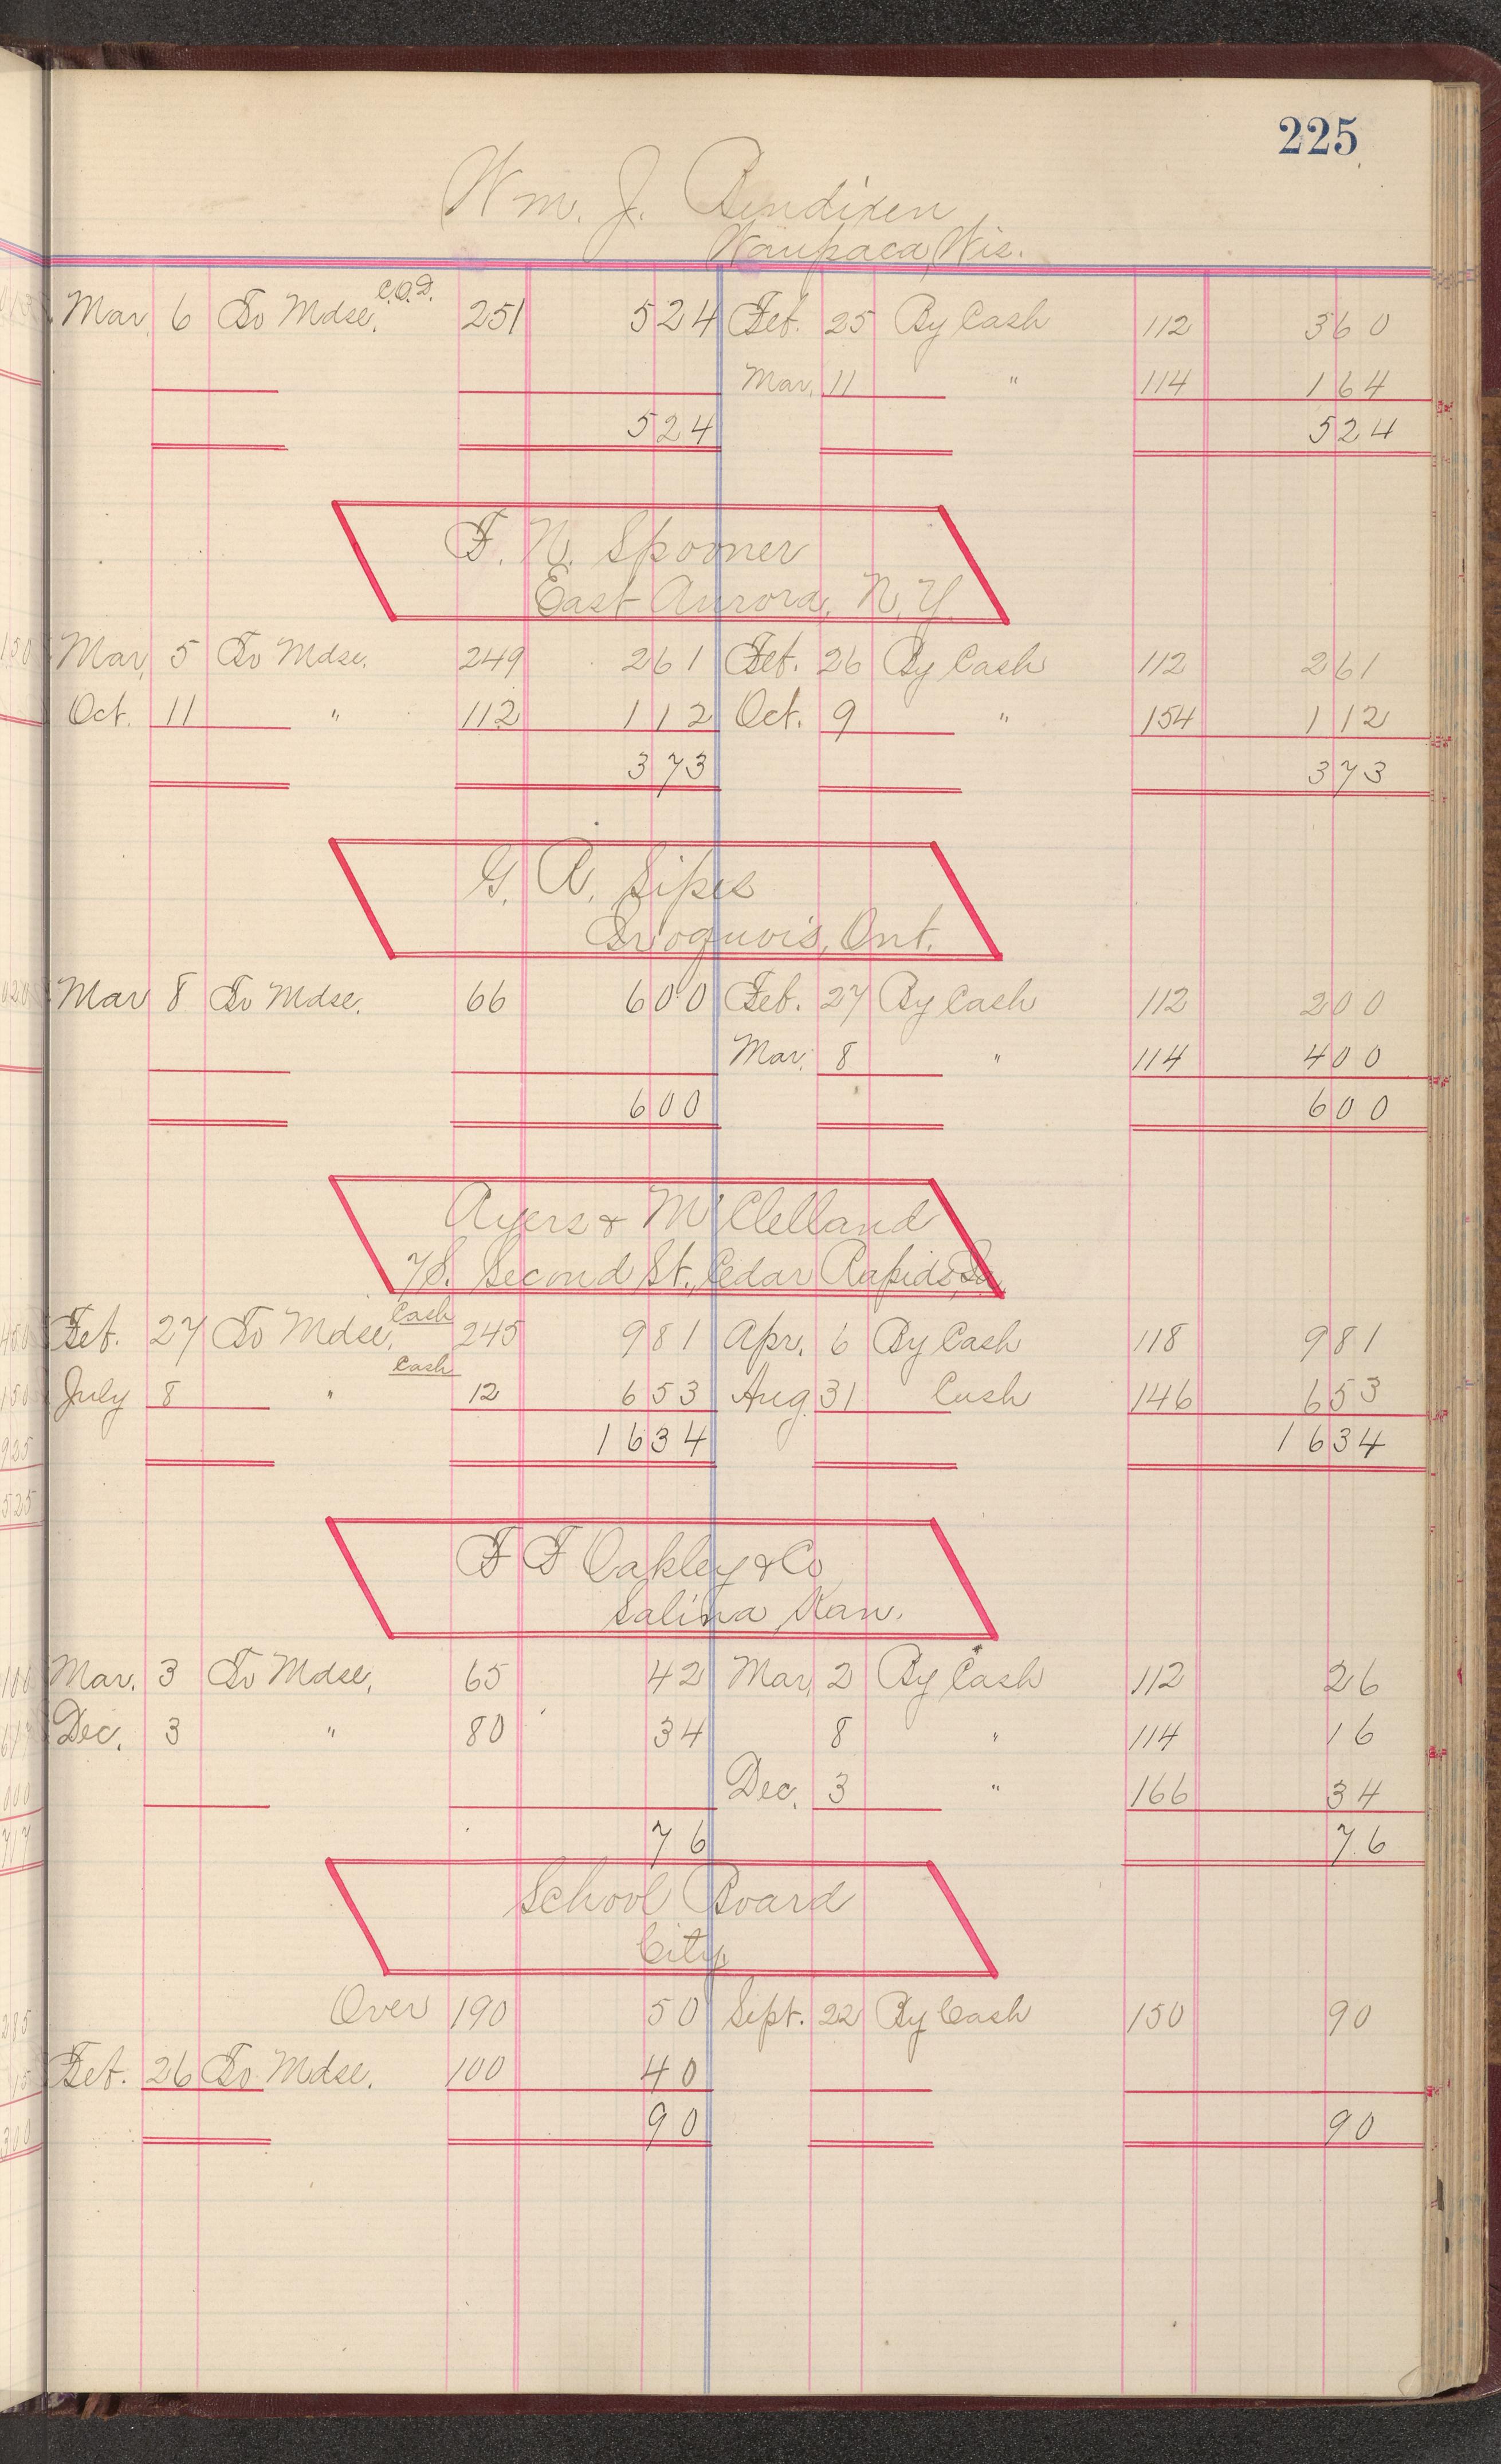 225
Wm. J. Bendixen
Waupaca, Wis.
Mar. 6 To Mdse, C.O.D. 251 524 Feb. 25 By Cash 112 360
Mar. 11 " 114 164
524 524
F. N. Spooner
East Aurora, N.Y.
Mar, 5 To Mdse. 249 261 Feb. 26 By Cash 112 261
Oct. 11 " 112 112 Oct. 9 " 154 112
373 373
G. A. Sipes
Iroquois, Ont.
Mar 8 To Mdse, 66 600 Feb. 27 By Cash 112 200
Mar. 8 " 114 400
600 600
Ayers & McClelland
7 S. Second St., Cedar Rapids, Ia.
Feb. 27 To Mdse, Cash 245 981 Apr. 6 By Cash 118 981
July 8 " Cash 12 653 Aug 31 Cash 146 653
1634 1634
F F Oakley & Co
Salina Kan.
Mar. 3 To Mdse, 65 42 Mar. 2 By Cash 112 26
Dec. 3 " 80 34 8 " 114 16
Dec. 3 " 166 34
76 76
School Board
City
Over 190 50 Sept. 22 By Cash 150 90
Feb. 26 To Mdse. 100 40
90 90